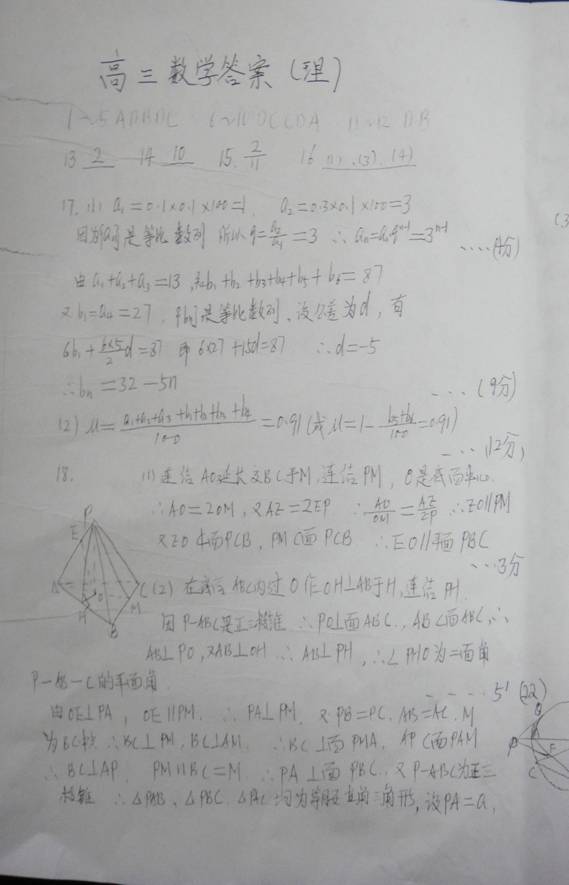 高三数学答案(理)
13 2 14 10 15. 2/11 16 (1).(3).(4)
17. (1) a₁=0.1×0.1×100=1. a₂=0.3×0.1×100=3
因为{aₙ}是等比数列 所以q=a₂/a₁=3 ∴aₙ=a₁qⁿ⁻¹=3ⁿ⁻¹ ....(4分)
由a₁+a₂+a₃=13, b₁+b₂+b₃+b₄+b₅+b₆=87
又b₁=a₄=27. {bₙ}是等差数列、设公差为d,有
6b₁+(6×5/2)d=87 即6×27+15d=87 ∴d=-5
∴bₙ=32-5n ....(9分)
(2) μ=(a₁+a₂+a₃+b₁+b₂+b₃+b₄)/100=0.91(或μ=1-(b₅+b₆)/100=0.91)
....12分)
18. (1)连结AO延长交BC于M,连结PM, O是底面中心
∴AO=2OM,又AZ=2EP ∴AO/OM=AZ/ZP ∴ZO∥PM
又ZO⊄面PCB,PM⊂面PCB ∴EO∥平面PBC
...3分
P
E
A
H
O
B
M
C
(2)在 ABC内过O作OH⊥AB于H,连结PH.
因P-ABC是正三棱锥 ∴PO⊥面ABC.,AB⊂面ABC,∴
AB⊥PO,又AB⊥OH ∴AB⊥PH,∴∠PHO为二面角
P-AB-C的平面角. ....5' (22)
由OE⊥PA, OE∥PM. ∴PA⊥PM. 又PB=PC. AB=AC. M
为BC中点 ∴BC⊥PM,BC⊥AM. ∴BC⊥面PMA. AP⊂面PAM
∴BC⊥AP. PM∩BC=M ∴PA⊥面PBC. 又P-ABC为正三
棱锥 ∴△PAB、△PBC.△PAC均为等腰直角三角形,设PA=a,